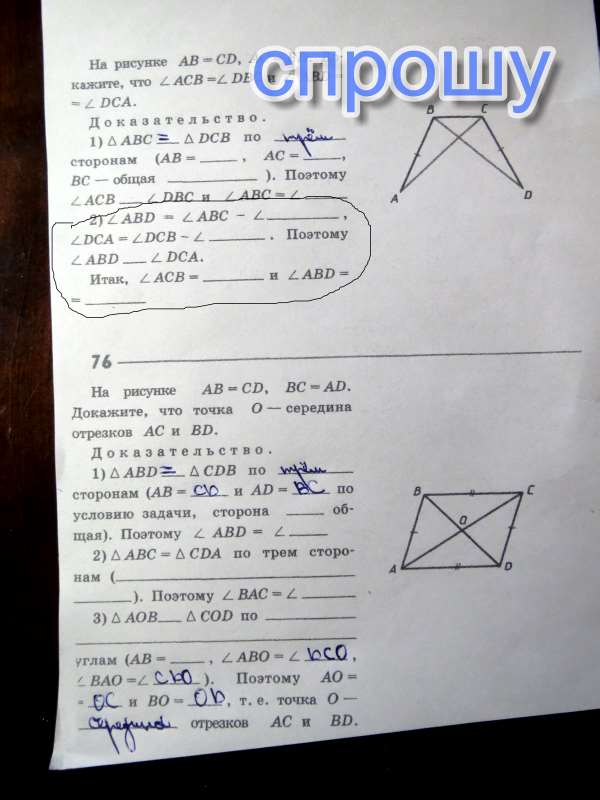 спрошу
На рисунке AB = CD, ∠
кажите, что ∠ ACB = ∠ DB и
= ∠ DCA.
Доказательство.
1) △ ABC = △ DCB по трём
сторонам (AB = ____ , AC = ____ ,
BC — общая ____ ). Поэтому
∠ ACB __ ∠ DBC и ∠ ABC = ∠ ____
2) ∠ ABD = ∠ ABC − ∠ ____ ,
∠ DCA = ∠ DCB − ∠ ____ . Поэтому
∠ ABD __ ∠ DCA.
Итак, ∠ ACB = ____ и ∠ ABD =
= ____
B C
A D
76
На рисунке AB = CD, BC = AD.
Докажите, что точка O — середина
отрезков AC и BD.
Доказательство.
1) △ ABD = △ CDB по трём
сторонам (AB = CD и AD = BC по
условию задачи, сторона ____ об-
щая). Поэтому ∠ ABD = ∠ ____
2) △ ABC = △ CDA по трем сторо-
нам ( ____
____ ). Поэтому ∠ BAC = ∠ ____
3) △ AOB __ △ COD по ____
углам (AB = ____ , ∠ ABO = ∠ DCO ,
∠ BAO = ∠ CDO ). Поэтому AO =
= OC и BO = OD , т. е. точка O —
середина отрезков AC и BD.
B C
O
A D